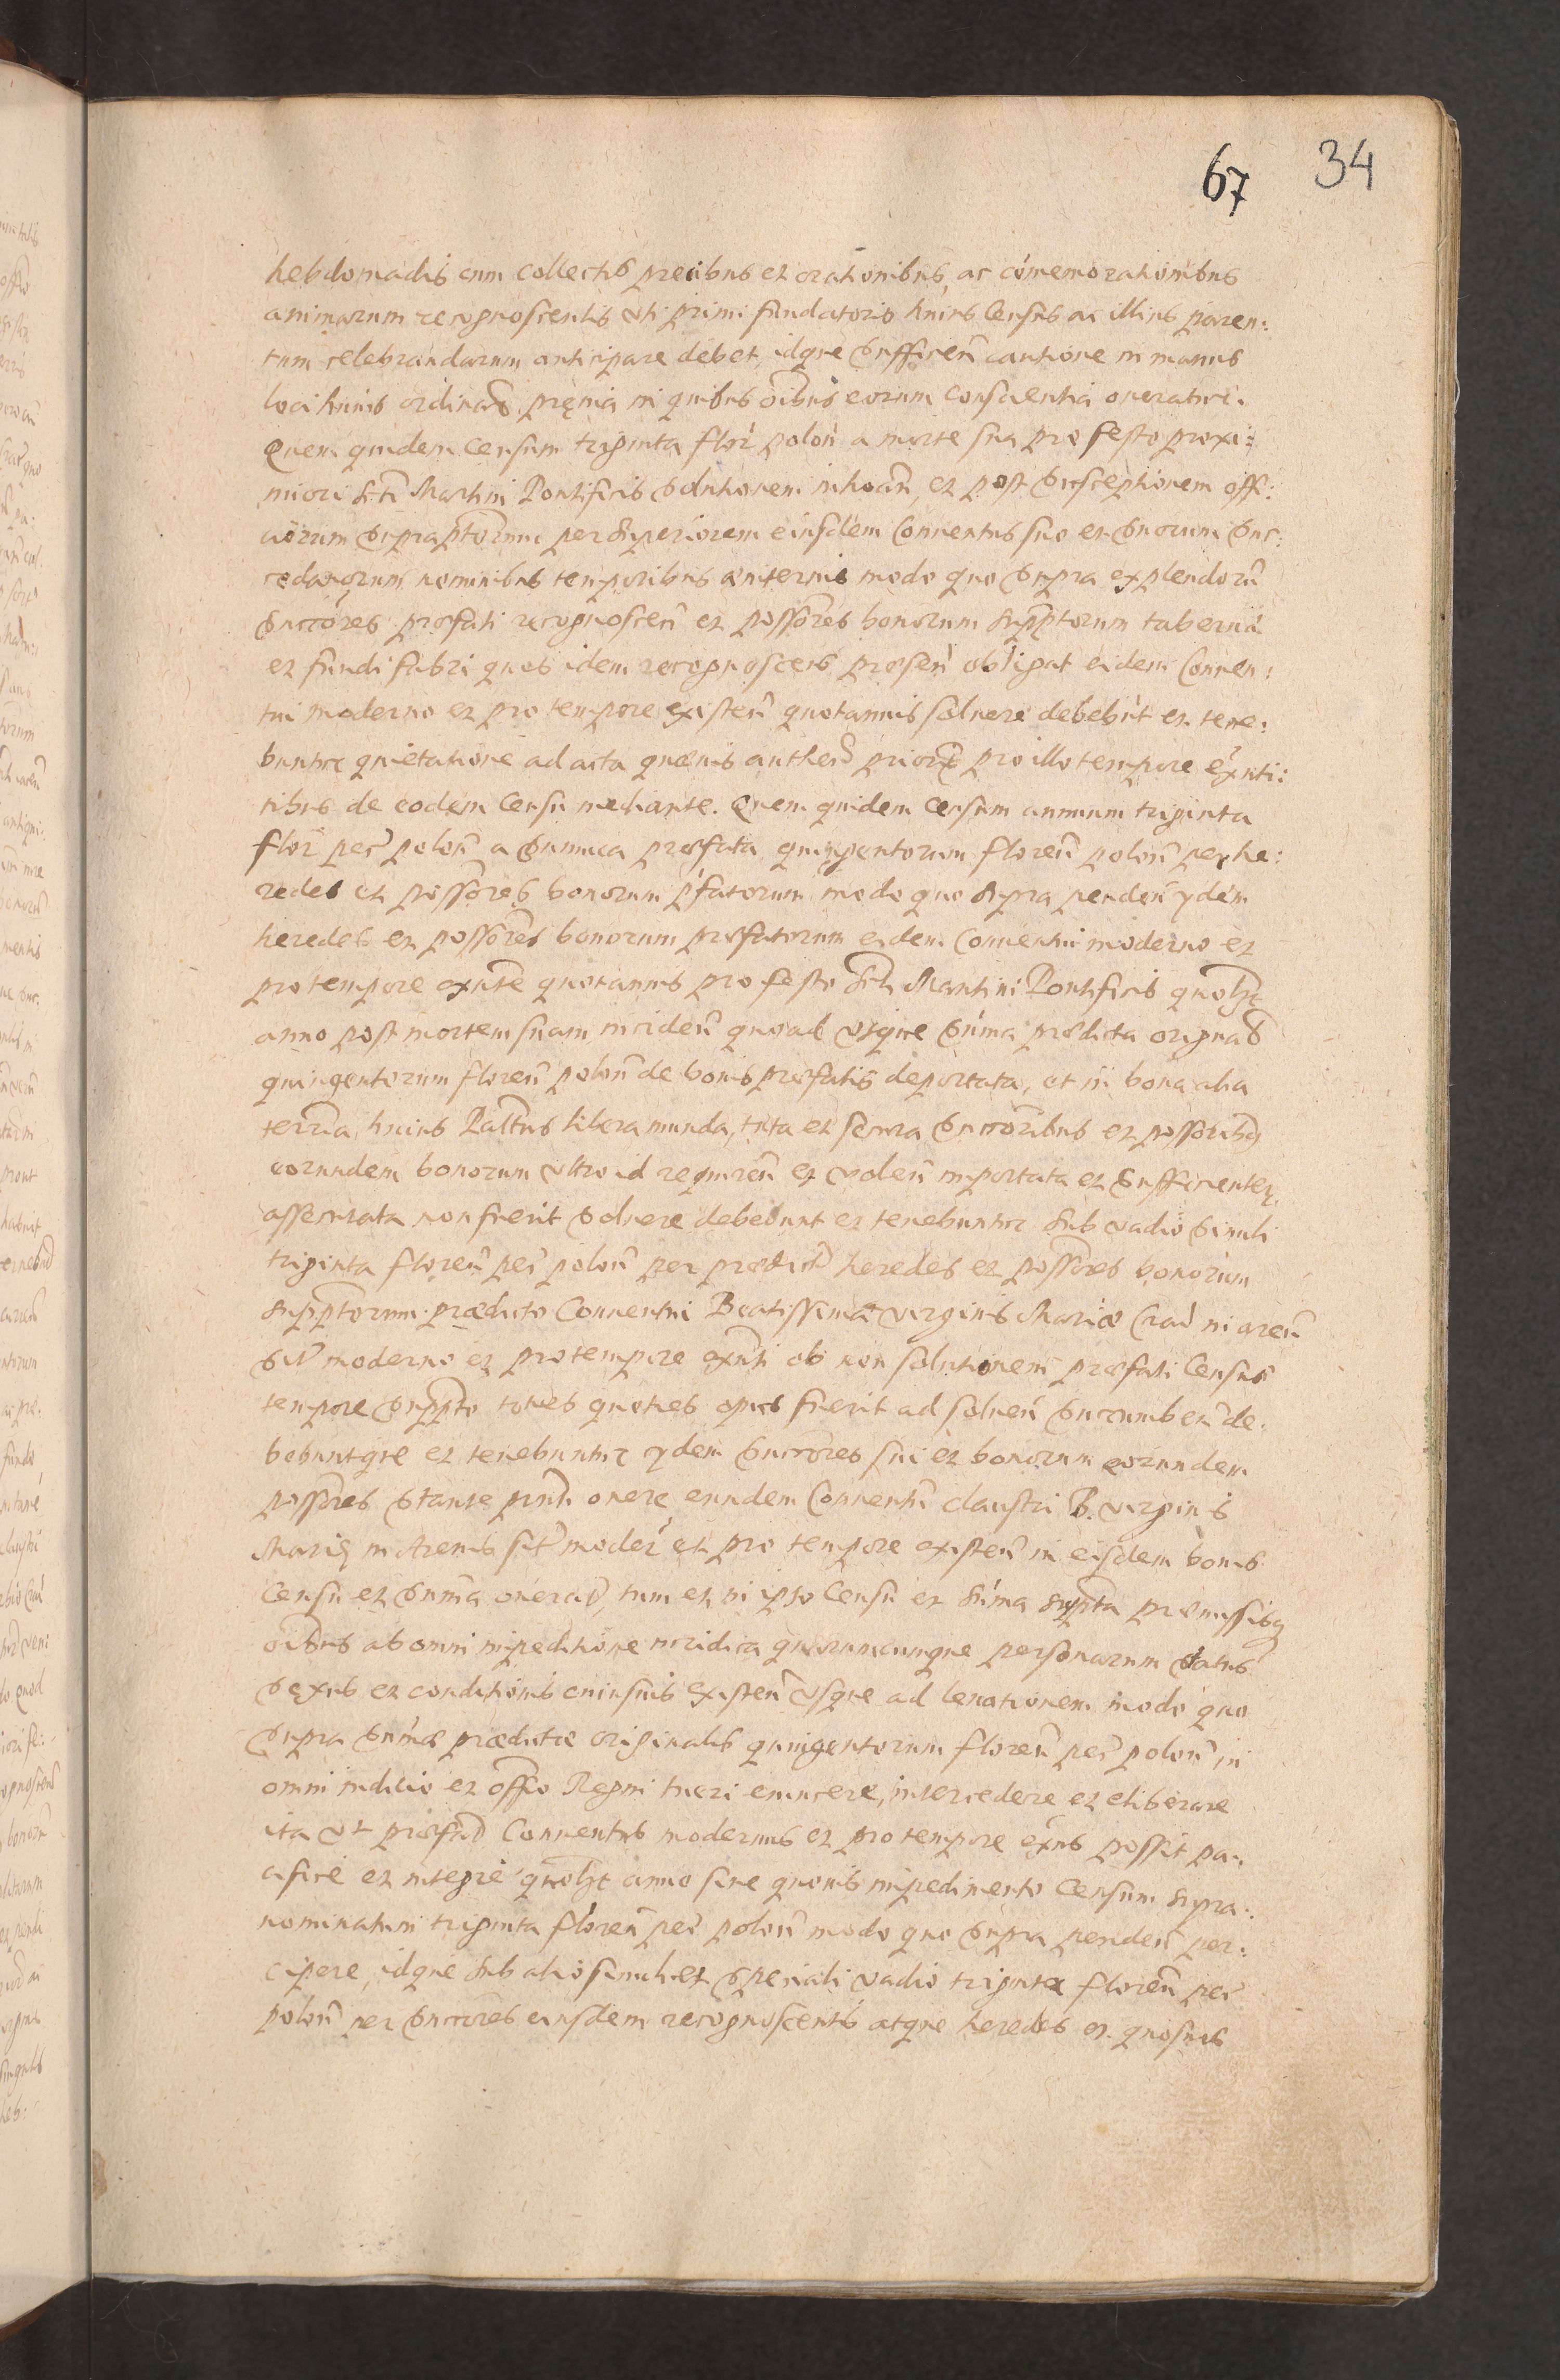 67 34
hebdomadis cum collectis precibus et orationibus, ac cómemorationibus
animarum recognoscentis vti primi fundatoris huius Census ac illius paren:
tum celebrandarum anticipare debet, idque sufficien̄ cautione in manus
loci huius ordinarÿ prȩuia in quibus oībus eorum conscientia oneratur.
Quem quidem Censum triginta flor̄ polon̄ a morte sua pro festo proxi:
miori Scti Martini Pontificis solutionem inchoan̄, et post susceptionem offi:
ciorum suprapt̄orum per Superiorem eiusdem Conuentus suo et suorum suc:
cedaneorum nominibus temporibus æuiternis modo quo supra explendorū
succōres præfati recognoscen̄ et possōres bonorum suprapt̄orum tabernæ
et fundi fabri quos idem recognoscens præsen̄ obligat eidem Conuen:
tui moderno et pro tempore existen̄ quotannis soluere debebūt et tene:
buntur quietatione ad acta quæuis authen̄ priorū pro illo tempore exn̄ti:
tibus de eodem Censu mediante. Quem quidem Censum annuum triginta
flor̄ pec̄ polon̄ a summa præfata quingentorum floren̄ polon̄ per he:
redes et possōres bonorum p̄fatorum modo quo supra penden̄ ydem
heredes et possōres bonorum præfatorum eidem Conuentui moderno et
pro tempore exn̄te quotannis pro festo Scti Martini Pontificis quolƺt
anno post mortem suam inciden̄ quoad vsque sum̄a prædicta originaƚ
quingentorum floren̄ polon̄ de bonis præfatis deportata, et in bona alia
terrīa, huius Palt̄us libera munda, tuta et secura succōribus et possōribƺ
eorundem bonorum vltro id requiren̄ et volen̄ importata et sufficienter
assecurata non fuerit soluere debebunt et tenebuntur sub vadio simili
triginta floren̄ pec̄ polon̄ per prædict̄ heredes et possōres bonorum
suprapt̄orum prædicto Conuentui Beatissimæ virginis Mariæ Crac̄ in aren̄
sit̄ moderno et pro tempore exn̄ti ob non solutionem præfati Census
tempore suprapt̄o toties quoties opus fuerit ad soluen̄ succumben̄ de:
bebuntque et tenebuntur ydem succōres sui et bonorum eorundem
possōres stante pn̄ti onere eundem Conuentū claustri B. virginis
Mariȩ in Arenis sit̄ moder̄ et pro tempore existen̄ in eisdem bonis
Censu et sum̄a onerat̄, tum et in ipso Censu et sum̄a suprapt̄a præmissisƺ
oībus ab omni impeditione iuridica quorumcunque personarum status
sexus et conditionis cuiusuis existen̄ vsque ad leuationem modo quo
supra sum̄æ prædictæ originalis quingentorum floren̄ pec̄ polon̄ in
omni iuditio et offīo Regni tueri euincere, intercedere et eliberare
ita vt præfat̄ Conuentus modernus et pro tempore exn̄s possit pa:
cifice et integre quolƺt anno sine quouis impedimento Censum supra:
nominatum triginta floren̄ pec̄ polon̄ modo quo supra penden̄ per:
cipere, idque sub alio simili et speciali vadio triginta floren̄ pec̄
polon̄ per succōres eiusdem recognoscentis atque heredes et quosuis